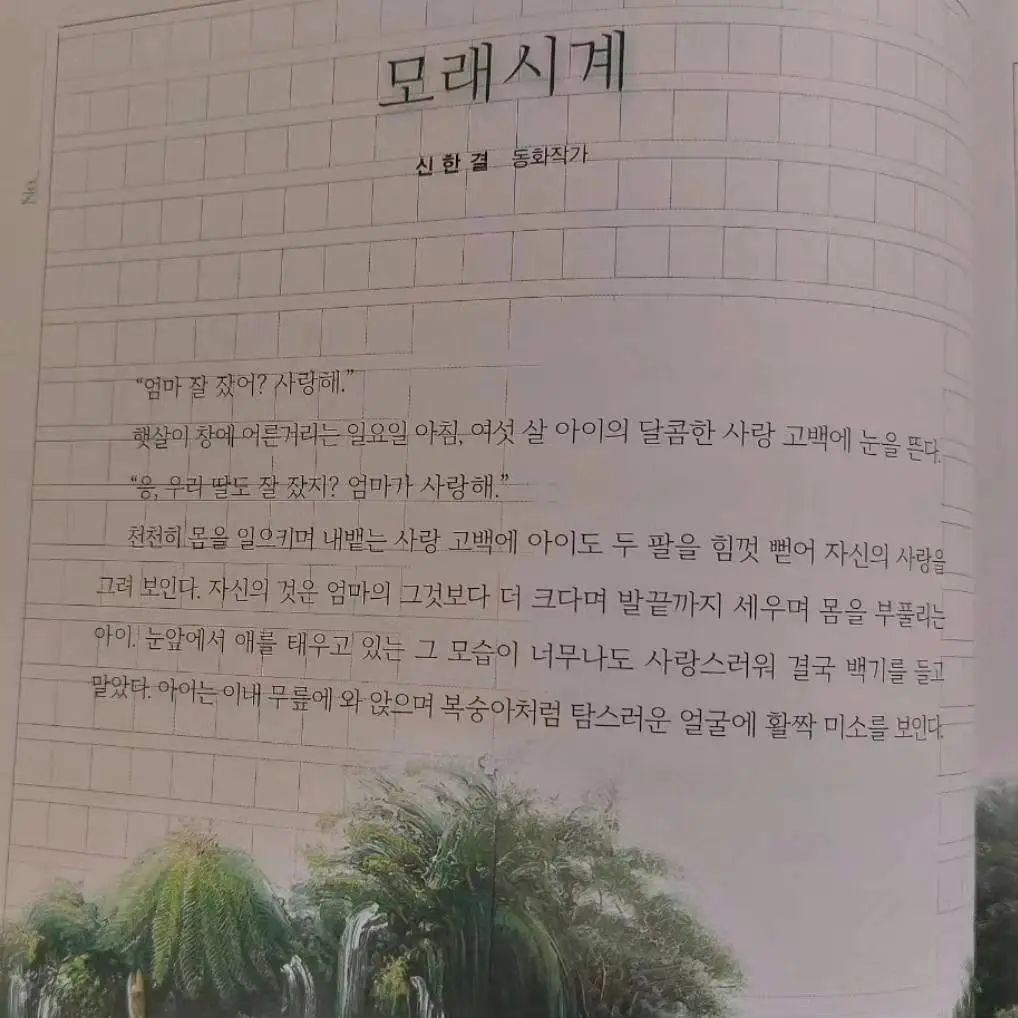 모래시계
신한결 동화작가
No.
"엄마 잘 잤어? 사랑해."
햇살이 창에 어른거리는 일요일 아침, 여섯 살 아이의 달콤한 사랑 고백에 눈을 뜬다.
"응, 우리 딸도 잘 잤지? 엄마가 사랑해."
천천히 몸을 일으키며 내뱉는 사랑 고백에 아이도 두 팔을 힘껏 뻗어 자신의 사랑을
그려 보인다. 자신의 것은 엄마의 그것보다 더 크다며 발끝까지 세우며 몸을 부풀리는
아이. 눈앞에서 애를 태우고 있는 그 모습이 너무나도 사랑스러워 결국 백기를 들고
말았다. 아이는 이내 무릎에 와 앉으며 복숭아처럼 탐스러운 얼굴에 활짝 미소를 보인다.